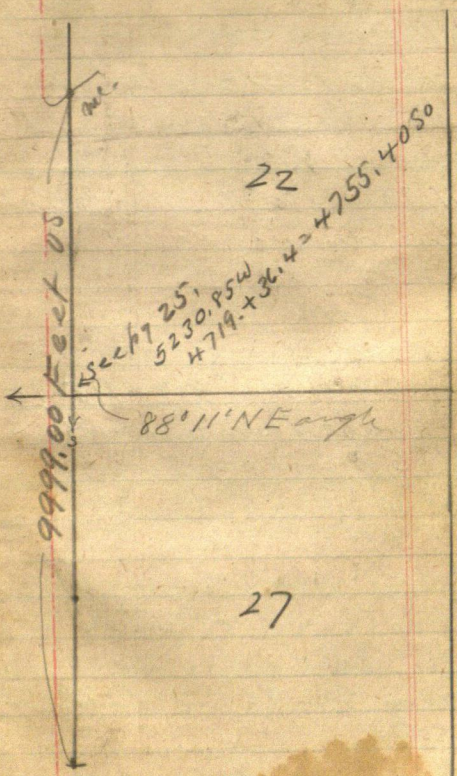 mc.
22
see pg 25,
5230.85W
4719.+36.4=4755.4050
9999.00 Feet US
88°11'NE angle
27